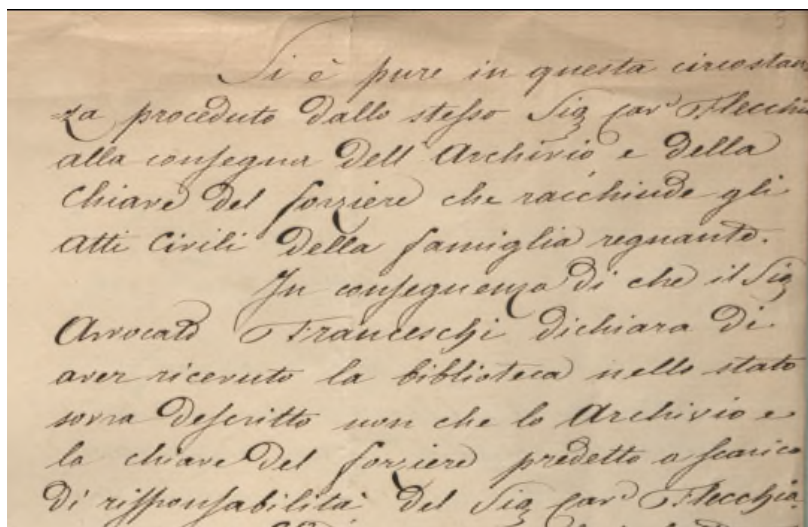 Si è pure in questa circostan
za proceduto dallo stesso Sig Cav.r Flecchia
alla consegna dell'Archivio e della
Chiave del forziere che racchiude gli
Atti Civili della famiglia regnante.
In conseguenza di che il Sig
Avvocato Franceschi dichiara di
aver ricevuto la biblioteca nello stato
sovra descritto non che lo Archivio e
la chiave del forziere predetto a scarico
di rissponsabilità del Sig Cav.r Flecchia